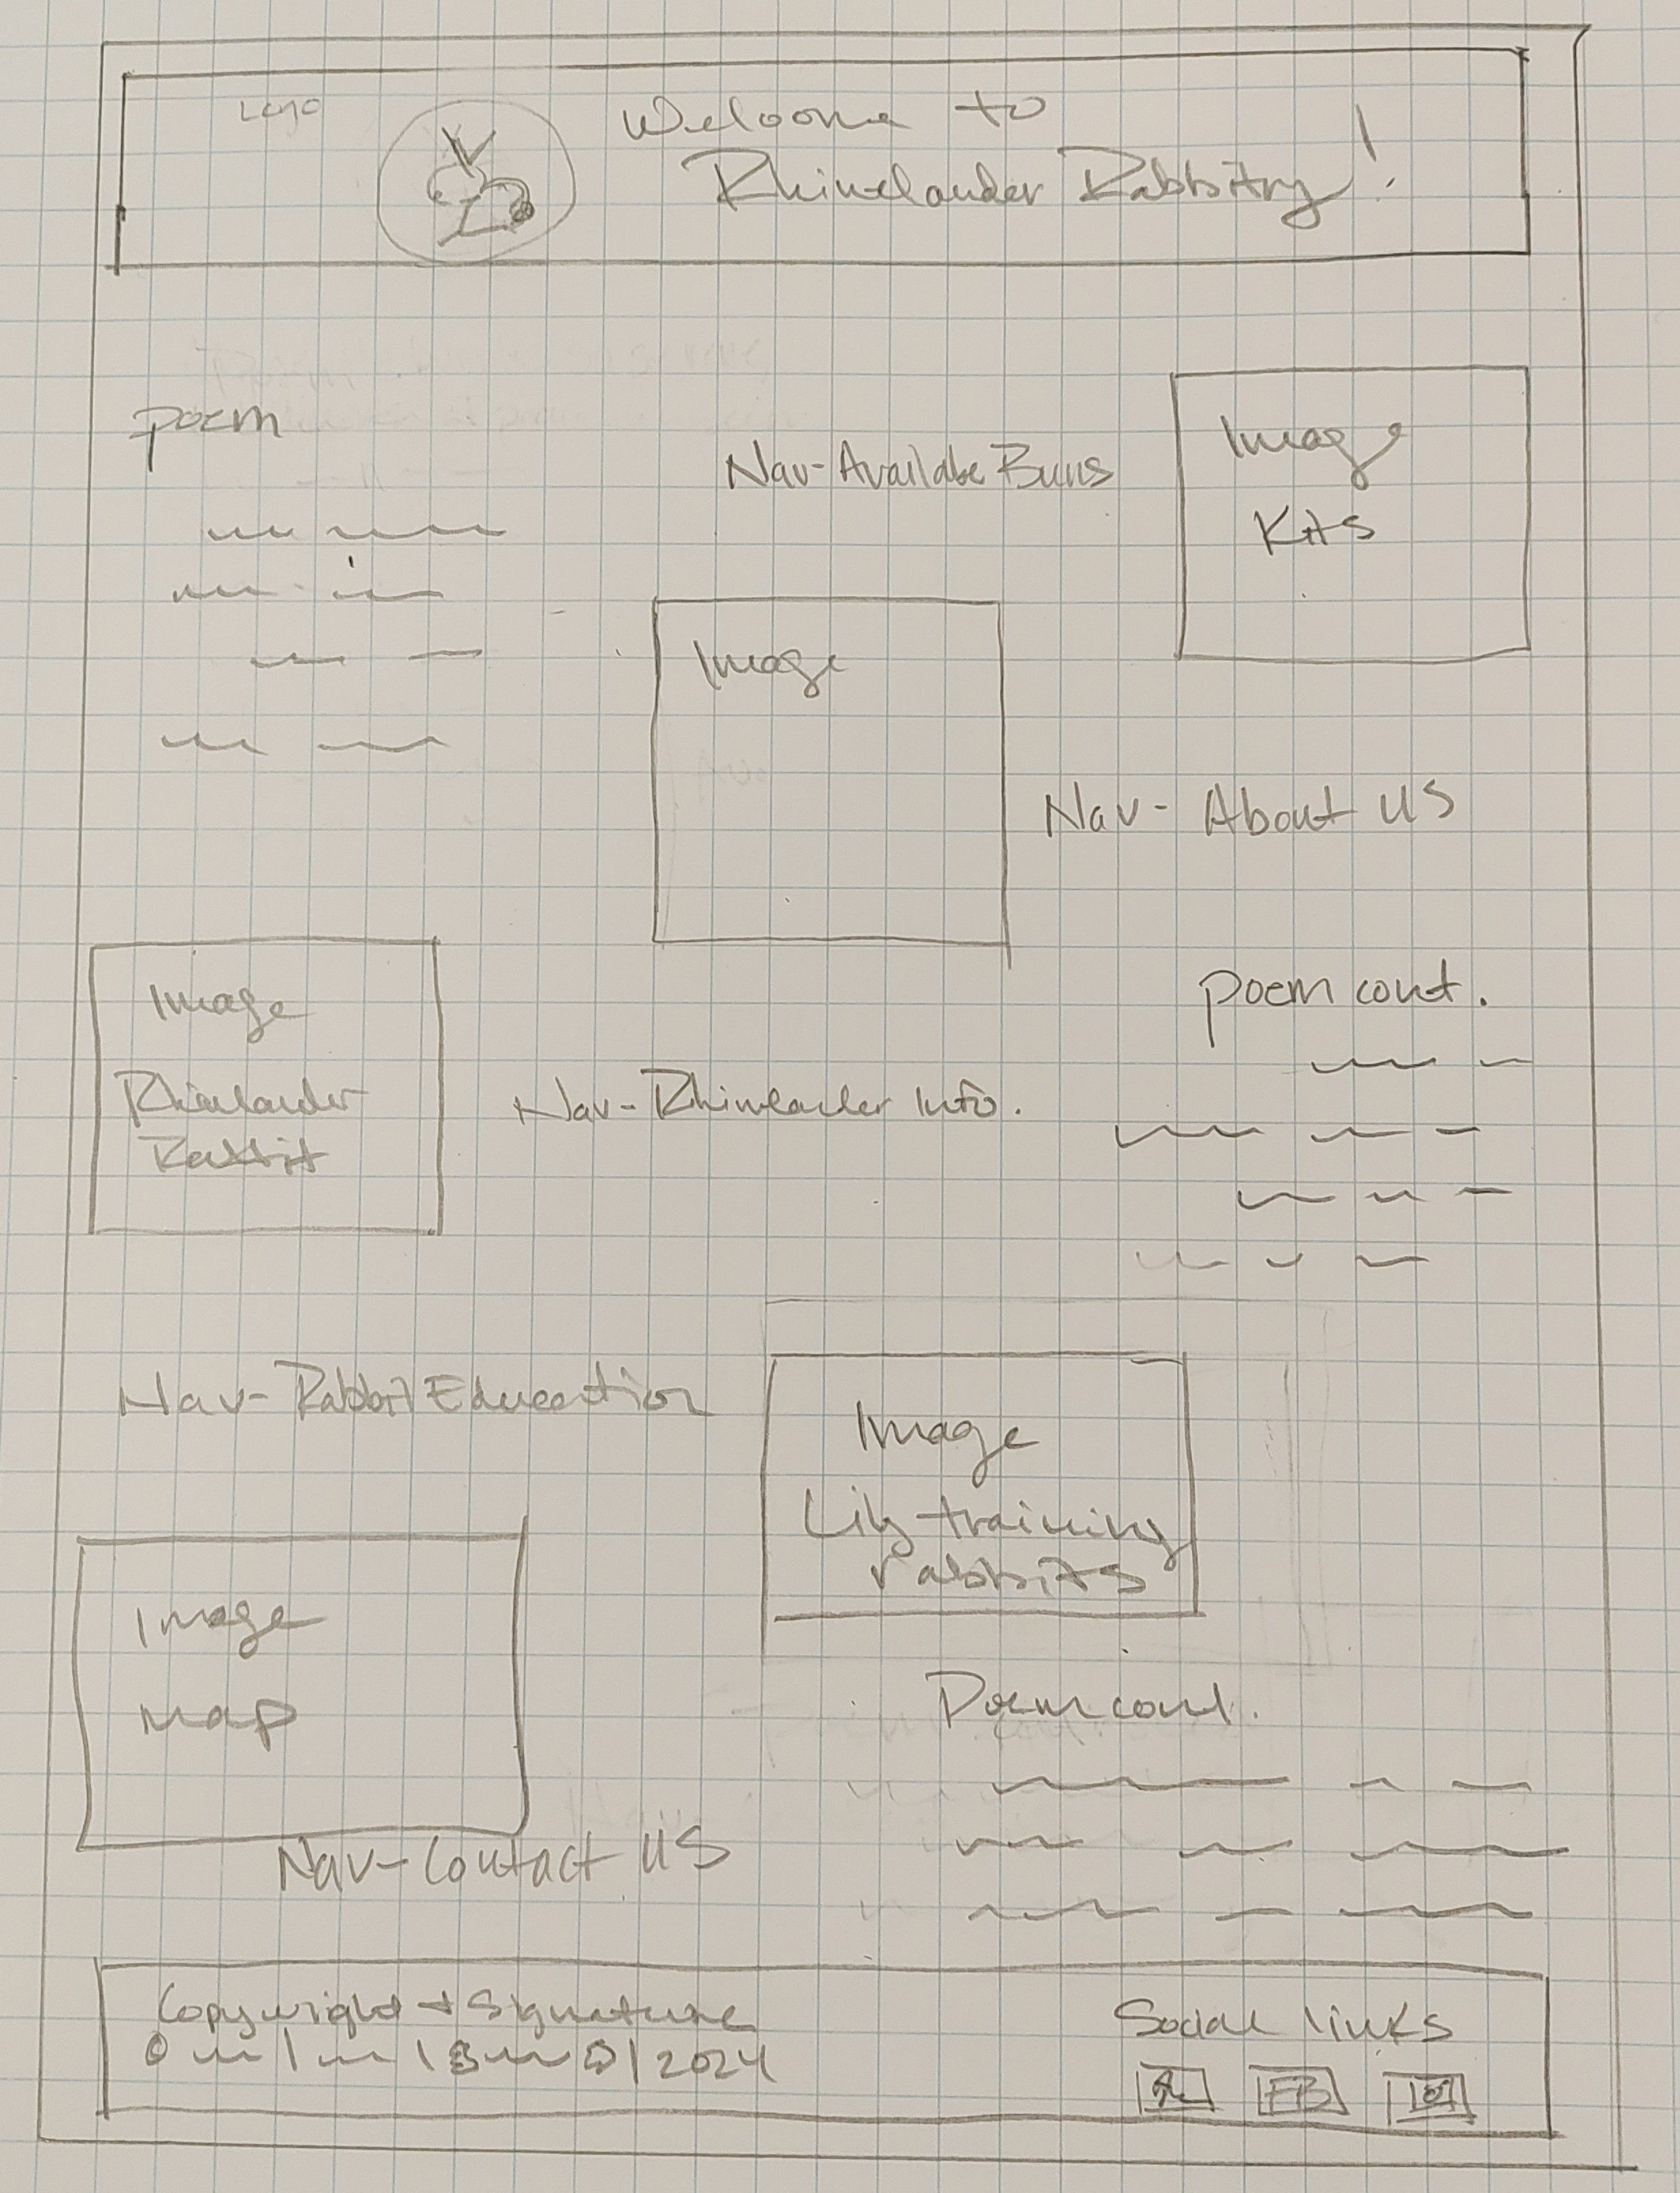 Logo
Welcome to
Rhinelander Rabbitry!
poem
Nav-Availabe Buns
Image
Kits
Image
Nav- About US
Image
Rhinelander
Rabbit
Nav-Rhinelander Info.
poem cont.
Nav-Rabbit Education
Image
Lily training
rabbits
Image
map
Poem cont.
Nav-Contact US
Copywright + Signature
© | | | 2024
Social links
FB